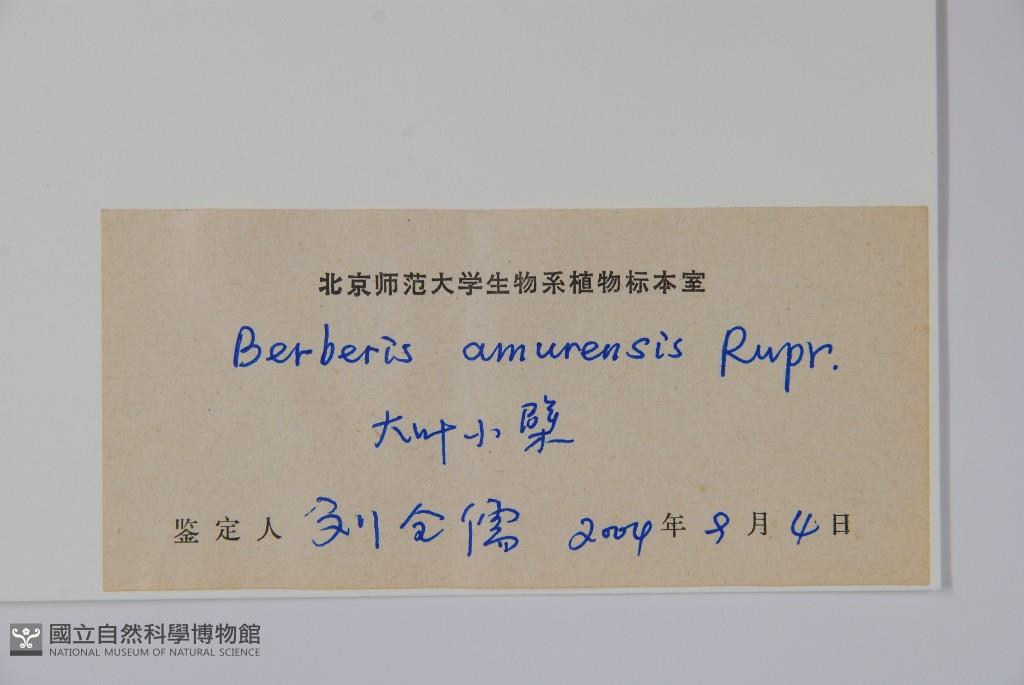 北京师范大学生物系植物标本室
Berberis amurensis Rupr.
大叶小檗
鉴定人 刘全儒 2004年9月4日
國立自然科學博物館
NATIONAL MUSEUM OF NATURAL SCIENCE